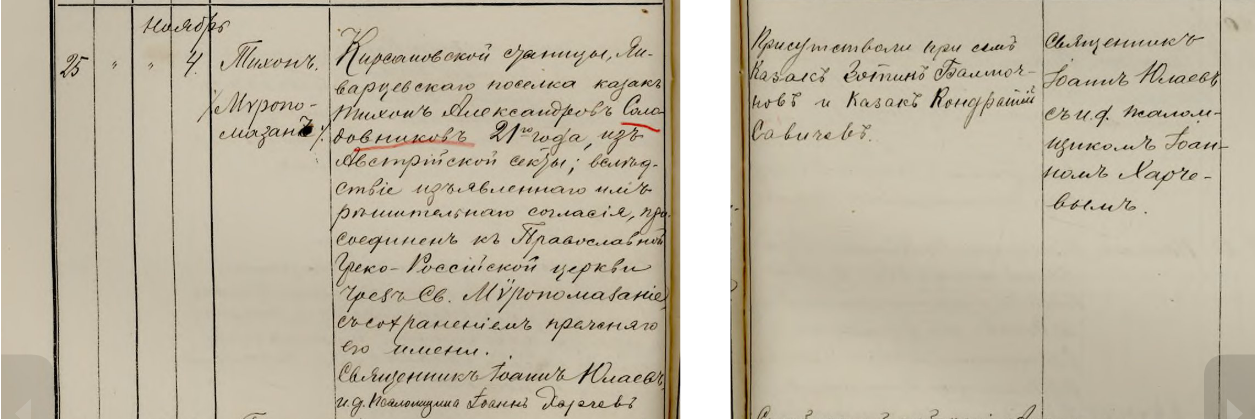 Ноябрь
25 " " 4.
Тихонъ.
/Мѵропо-
мазанъ/.
Кирсановской станицы, Ян-
варцевскаго поселка казакъ
Тихонъ Александровъ Соло
довниковъ 21го года, изъ
Австрійской секты; вслѣд-
ствіе изъявленнаго имъ
рѣшительнаго согласія, при
соединенъ къ Православной
Греко-Россійской церкви
чрезъ Св. Мѵропомазаніе,
съ сохраненіемъ прежняго
его имени.
Священникъ Іоаннъ Юлаевъ,
и. д. Псаломщика Іоаннъ Харчевъ
Присутствовали при семъ
Казакъ Зотинъ
новъ и Казакъ Кондратій
Савичевъ.
Священникъ
Іоаннъ Юлаевъ
съ и. д. псалом-
щикомъ Іоан-
номъ Харче-
вымъ.